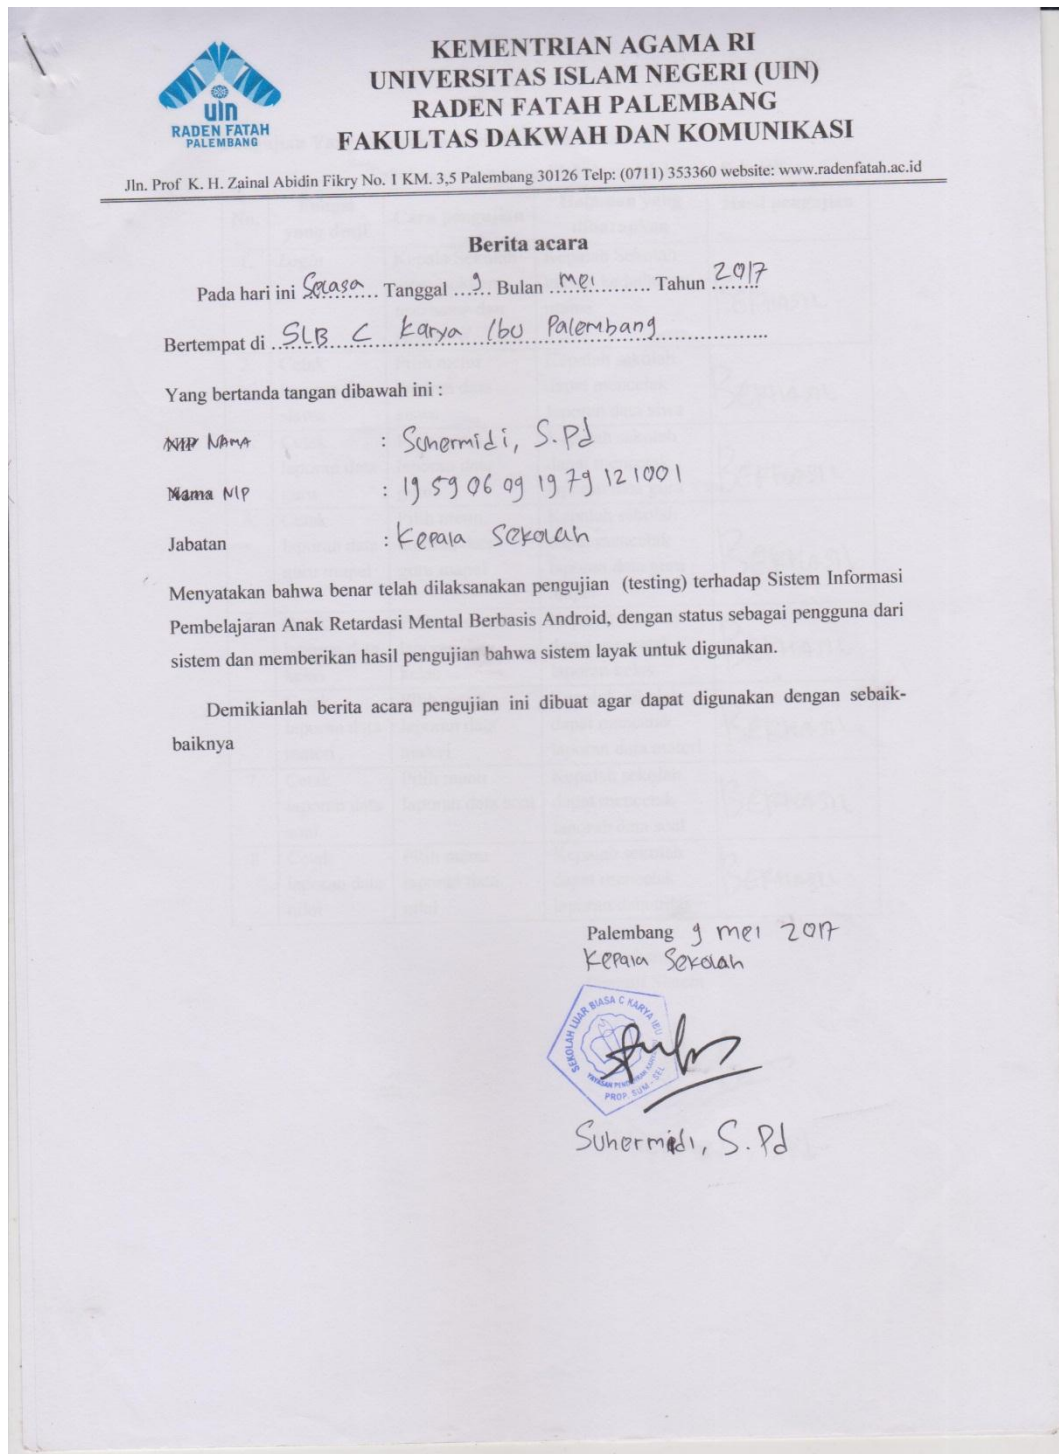 uin
RADEN FATAH
PALEMBANG
KEMENTRIAN AGAMA RI
UNIVERSITAS ISLAM NEGERI (UIN)
RADEN FATAH PALEMBANG
FAKULTAS DAKWAH DAN KOMUNIKASI
Jln. Prof K. H. Zainal Abidin Fikry No. 1 KM. 3,5 Palembang 30126 Telp: (0711) 353360 website: www.radenfatah.ac.id
Berita acara
Pada hari ini Selasa Tanggal 9 Bulan Mei Tahun 2017
Bertempat di SLB C Karya Ibu Palembang
Yang bertanda tangan dibawah ini :
NIP NAMA : Suhermidi, S.Pd
Nama NIP : 19590609 1979121001
Jabatan : Kepala Sekolah
Menyatakan bahwa benar telah dilaksanakan pengujian (testing) terhadap Sistem Informasi
Pembelajaran Anak Retardasi Mental Berbasis Android, dengan status sebagai pengguna dari
sistem dan memberikan hasil pengujian bahwa sistem layak untuk digunakan.
Demikianlah berita acara pengujian ini dibuat agar dapat digunakan dengan sebaik-
baiknya
Palembang 9 mei 2017
Kepala Sekolah
SEKOLAH LUAR BIASA C KARYA IBU
PROP. SUM - SEL
Suhermidi, S.Pd